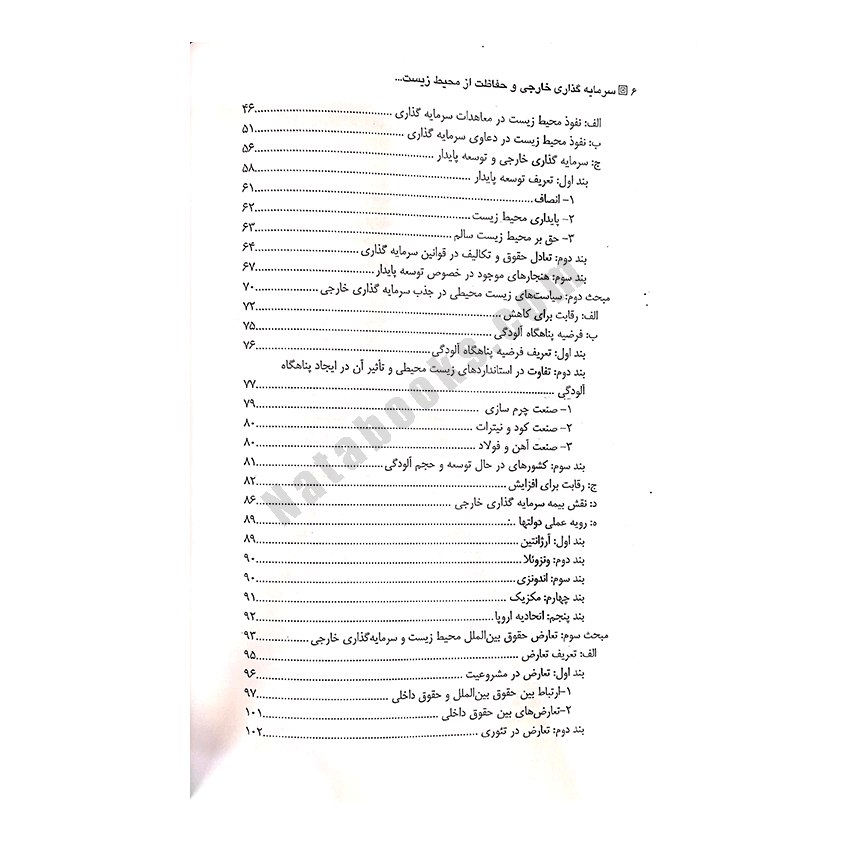 ۶ سرمایه گذاری خارجی و حفاظت از محیط زیست...
الف: نفوذ محیط زیست در معاهدات سرمایه گذاری ........ ۴۶
ب: نفوذ محیط زیست در دعاوی سرمایه گذاری ........ ۵۱
ج: سرمایه گذاری خارجی و توسعه پایدار ........ ۵۶
بند اول: تعریف توسعه پایدار ........ ۵۸
۱- انصاف ........ ۶۱
۲- پایداری محیط زیست ........ ۶۲
۳- حق بر محیط زیست سالم ........ ۶۳
بند دوم: تعادل حقوق و تکالیف در قوانین سرمایه گذاری ........ ۶۴
بند سوم: هنجارهای موجود در خصوص توسعه پایدار ........ ۶۷
مبحث دوم: سیاست‌های زیست محیطی در جذب سرمایه گذاری خارجی ........ ۷۰
الف: رقابت برای کاهش ........ ۷۲
ب: فرضیه پناهگاه آلودگی ........ ۷۵
بند اول: تعریف فرضیه پناهگاه آلودگی ........ ۷۶
بند دوم: تفاوت در استانداردهای زیست محیطی و تأثیر آن در ایجاد پناهگاه
آلودگی ........ ۷۷
۱- صنعت چرم سازی ........ ۷۹
۲- صنعت کود و نیترات ........ ۸۰
۳- صنعت آهن و فولاد ........ ۸۰
بند سوم: کشورهای در حال توسعه و حجم آلودگی ........ ۸۱
ج: رقابت برای افزایش ........ ۸۲
د: نقش بیمه سرمایه گذاری خارجی ........ ۸۶
ه: رویه عملی دولتها ........ ۸۹
بند اول: آرژانتین ........ ۸۹
بند دوم: ونزوئلا ........ ۹۰
بند سوم: اندونزی ........ ۹۰
بند چهارم: مکزیک ........ ۹۱
بند پنجم: اتحادیه اروپا ........ ۹۲
مبحث سوم: تعارض حقوق بین‌الملل محیط زیست و سرمایه‌گذاری خارجی ........ ۹۳
الف: تعریف تعارض ........ ۹۵
بند اول: تعارض در مشروعیت ........ ۹۶
۱-ارتباط بین حقوق بین‌الملل و حقوق داخلی ........ ۹۷
۲-تعارض‌های بین حقوق داخلی ........ ۱۰۱
بند دوم: تعارض در تئوری ........ ۱۰۲
Natabooks.com